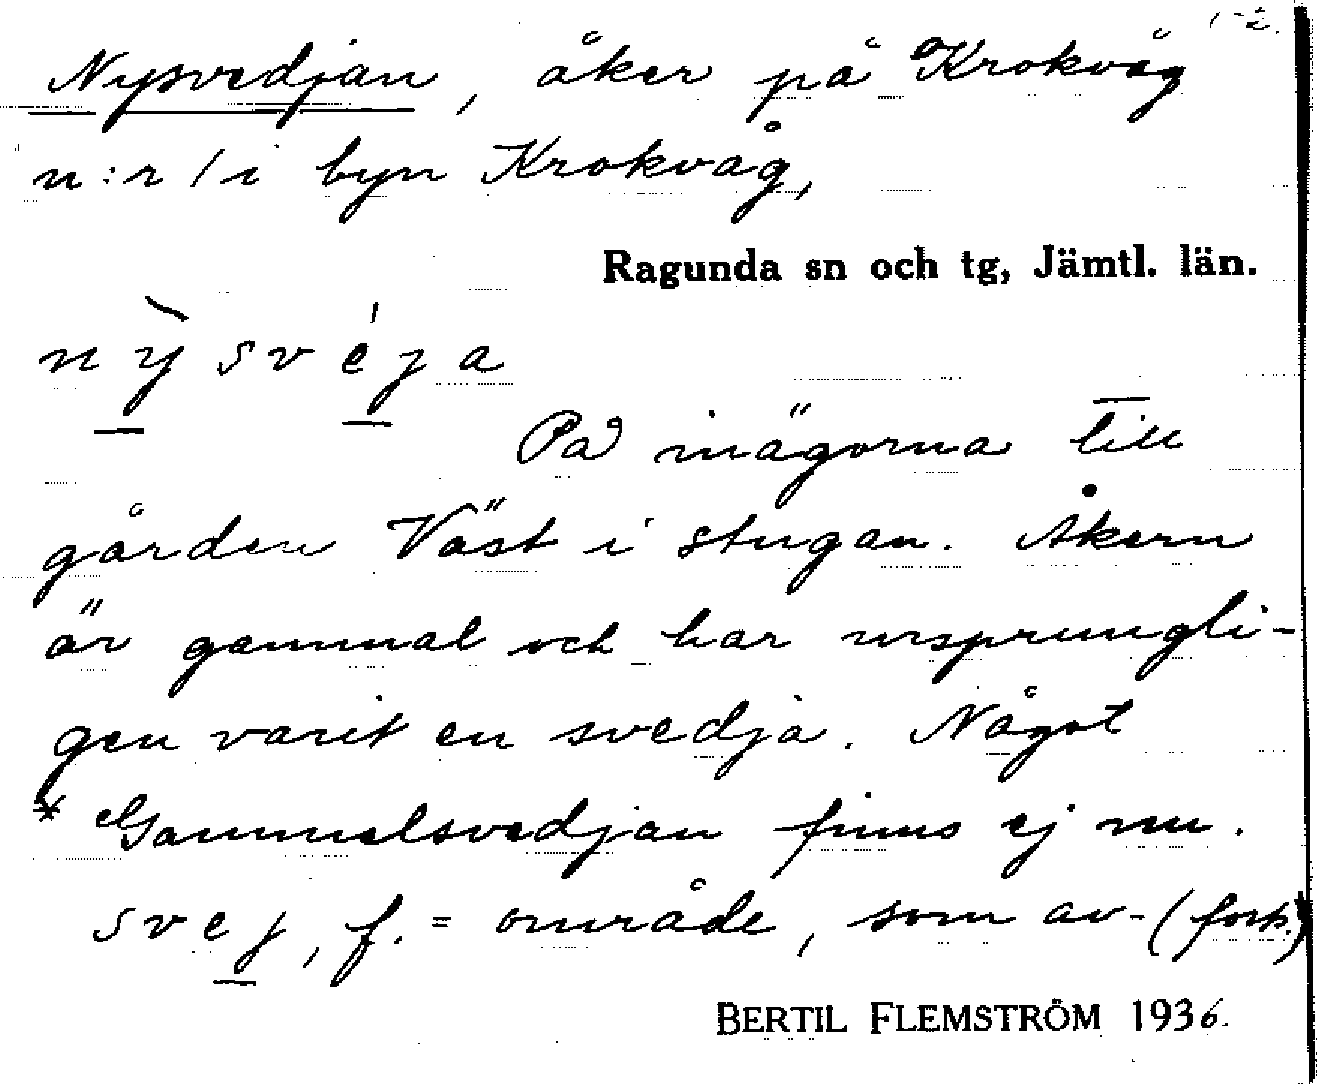 1-2.
Nysvedjan, åker på Krokvåg
n:r 1 i byn Krokvåg,
Ragunda sn och tg, Jämtl. län.
nỳsvéja
På inägorna till
gården Väst i stugan. Åkern
är gammal och har ursprungli-
gen varit en svedja. Något
* Gammelsvedjan finns ej nu.
svej, f. = område, som av- (forts.)
BERTIL FLEMSTRÖM 1936.